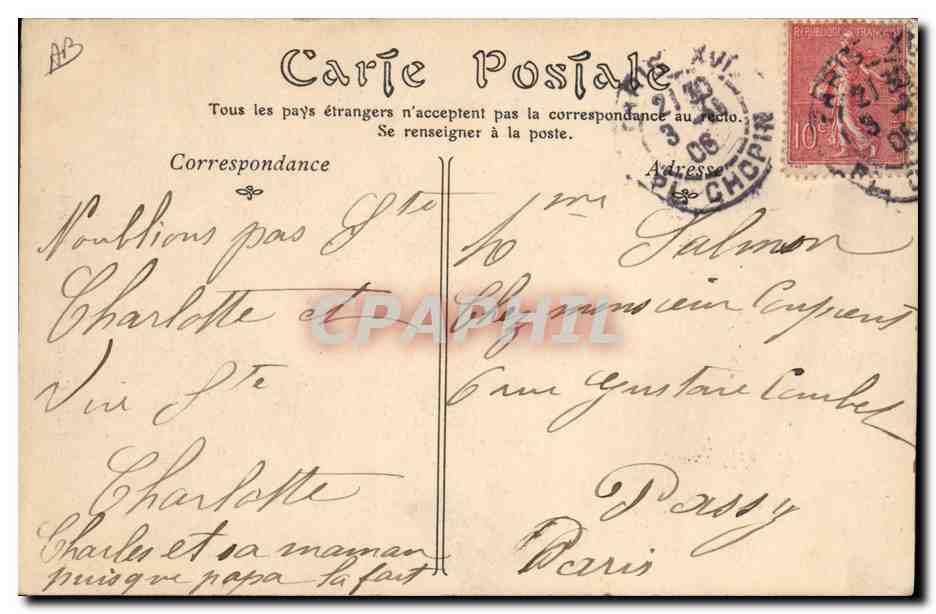 AB
Carte Postale
Tous les pays étrangers n'acceptent pas la correspondance au recto.
Se renseigner à la poste.
Correspondance
Noublions pas Ste
Charlotte et
Vive Ste
Charlotte
Charles et sa maman
puisque papa la fait
Adresse
Mme Salmon
Chez monsieur
6 rue Gustave Courbet
Passy
Paris
REPUBLIQUE FRANÇAISE
10c
PARIS XVI
21 30
3
06
PL. CHOPIN
CPAPHIL